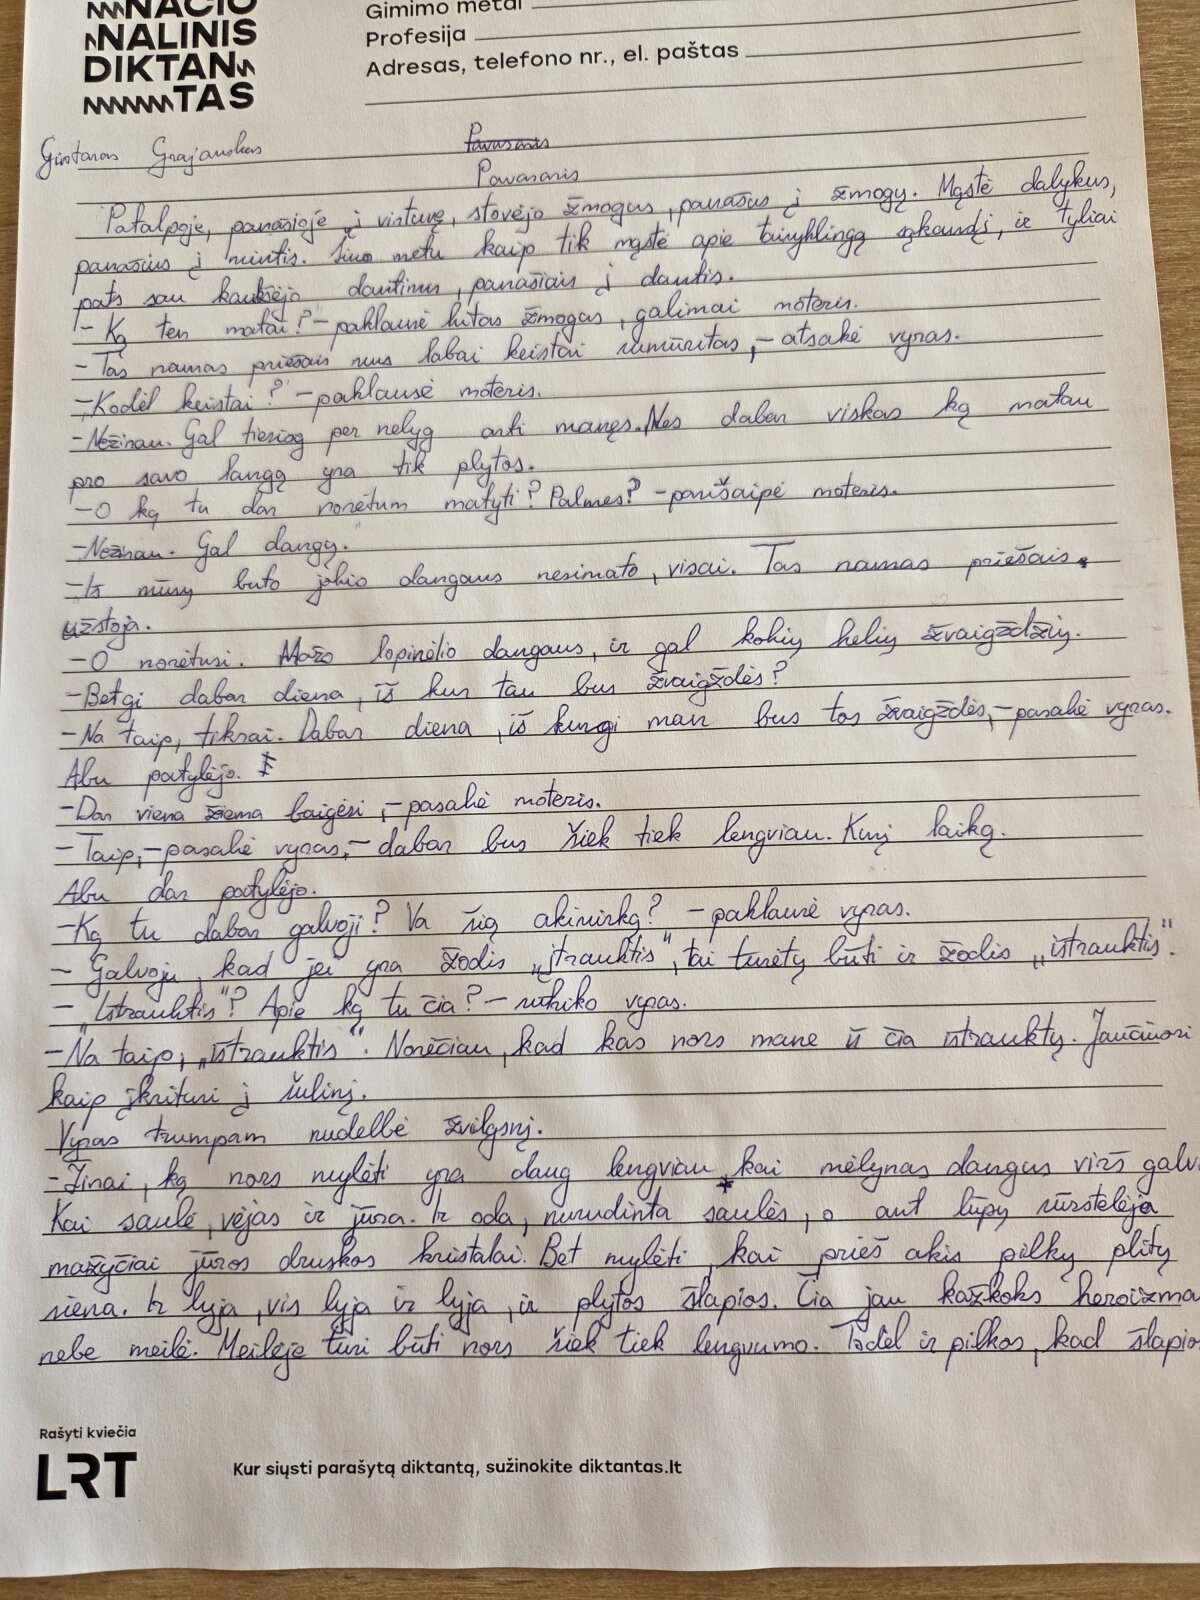 NACIO
NALINIS
DIKTAN
TAS
Gimimo metai
Profesija
Adresas, telefono nr., el. paštas
Gintaras Grajauskas
Pavasaris
Pavasaris
Patalpoje, panašioje į virtuvę, stovėjo žmogus, panašus į žmogų. Mąstė dalykus,
panašius į mintis. Šiuo metu kaip tik mąstė apie taisyklingą sąkandį, ir tyliai
pats sau kauksėjo dantimis, panašiais į dantis.
- Ką ten matai? - paklausė kitas žmogus, galimai moteris.
- Tas namas priešais mus labai keistai sumūritas, - atsakė vyras.
- Kodėl keistai? - paklausė moteris.
- Nežinau. Gal tiesiog per nelyg arti manęs. Nes dabar viskas ką matau
pro savo langą yra tik plytos.
- O ką tu dar norėtum matyti? Palmes? - pasišaipė moteris.
- Nežinau. Gal dangų.
- Iš mūsų buto jokio dangaus nesimato, visai. Tas namas priešais
užstoja.
- O norėtųsi. Mažo lopinėlio dangaus, ir gal kokių kelių žvaigždžių.
- Betgi dabar diena, iš kur tau bus žvaigždės?
- Na taip, tikrai. Dabar diena, iš kurgi man bus tos žvaigždės, - pasakė vyras.
Abu patylėjo.
- Dar viena žiema baigėsi, - pasakė moteris.
- Taip, - pasakė vyras, - dabar bus šiek tiek lengviau. Kurį laiką.
Abu dar patylėjo.
- Ką tu dabar galvoji? Va šią akimirką? - paklausė vyras.
- Galvoju, kad jei yra žodis „įtrauktis“, tai turėtų būti ir žodis „ištrauktis“.
- „Ištrauktis“? Apie ką tu čia? - sutriko vyras.
- Na taip, „ištrauktis“. Norėčiau, kad kas nors mane iš čia ištrauktų. Jaučiuosi
kaip įkritusi į šulinį.
Vyras trumpam nudelbė žvilgsnį.
- Žinai, ką nors mylėti yra daug lengviau, kai mėlynas dangus virš galvos
Kai saulė, vėjas ir jūra. Ir oda, nurudinta saulės, o ant lūpų sūrstelėja
mažyčiai jūros druskos kristalai. Bet mylėti, kai prieš akis pilkų plitų
siena. Ir lyja, vis lyja ir lyja, ir plytos šlapios. Čia jau kažkoks heroizmas
nebe meilė. Meilėje turi būti nors šiek tiek lengvumo. Todėl ir pilkos, kad šlapios
Rašyti kviečia
LRT
Kur siųsti parašytą diktantą, sužinokite diktantas.lt